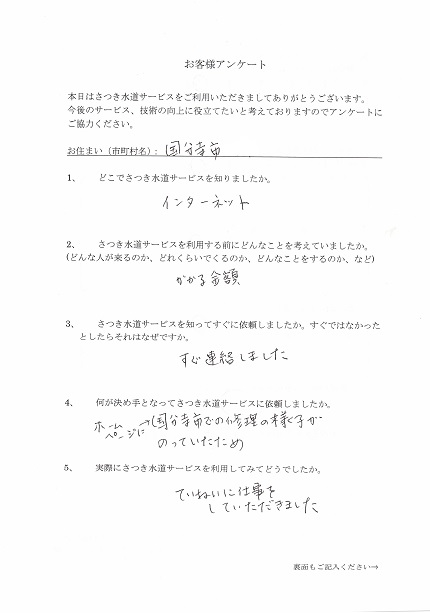 お客様アンケート
本日はさつき水道サービスをご利用いただきましてありがとうございます。
今後のサービス、技術の向上に役立てたいと考えておりますのでアンケートに
ご協力ください。
お住まい（市町村名）: 国分寺市
1、 どこでさつき水道サービスを知りましたか。
インターネット
2、 さつき水道サービスを利用する前にどんなことを考えていましたか。
(どんな人が来るのか、どれくらいでくるのか、どんなことをするのか、など)
かかる金額
3、 さつき水道サービスを知ってすぐに依頼しましたか。すぐではなかった
としたらそれはなぜですか。
すぐ連絡しました
4、 何が決め手となってさつき水道サービスに依頼しましたか。
ホームページに→国分寺市での修理の様子が
のっていたため
5、 実際にさつき水道サービスを利用してみてどうでしたか。
ていねいに仕事を
していただきました
裏面もご記入ください→